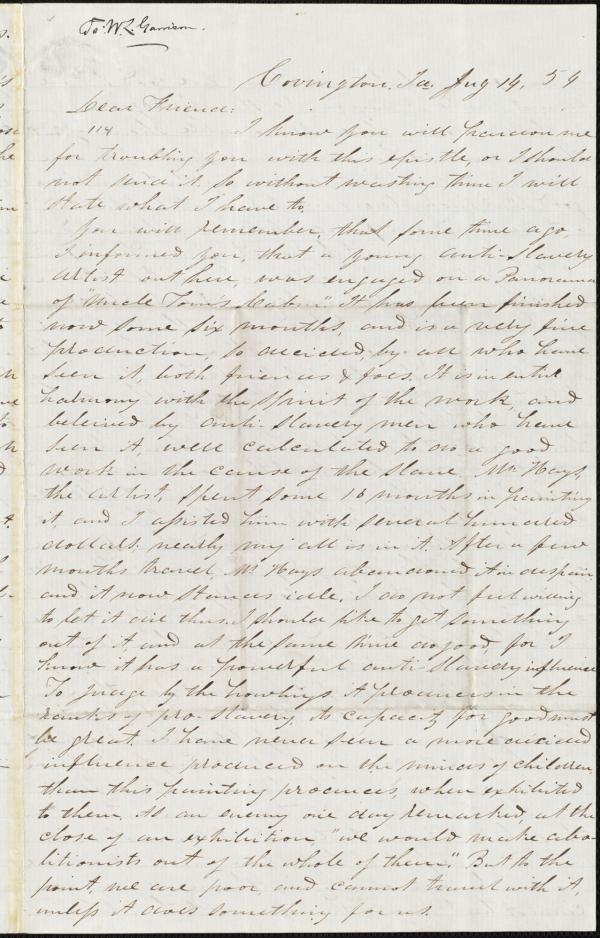 To W. L. Garrison.
Covington, Ia. Aug 14, 54
Dear Friend:
114
I know you will pardon me
for troubling you with this epistle, or I should
not send it. So without wasting time I will
state what I have to.
You will remember, that some time ago,
I informed you, that a young anti-Slavery
artist out here, was engaged on a Panorama
of "Uncle Tom's Cabin." It has been finished
now some six months, and is a very fine
production, so decided, by all who have
seen it, both friends & foes. It is in entire
harmony with the spirit of the work, and
beleived by anti Slavery men who have
seen it, well calculated to do a good
work in the cause of the slave. Mr. Hays,
the artist, spent some 10 months in painting
it, and I assisted him with several hundred
dollars. nearly my all is in it. After a few
months travel, Mr Hays abandoned it in despair
and it now stands idle. I do not feel willing
to let it die thus. I should like to get something
out of it, and at the same time do good, for I
know it has a powerful anti-Slavery influence
To judge by the howlings it produces in the
ranks of pro-Slavery, its capacity for good must
be great. I have never seen a more decided
influence produced on the minds of children,
than this painting produces, when exhibited
to them. As an enemy one day remarked, at the
close of an exhibition, "we would make abo-
litionists out of the whole of them." But to the
point, we are poor, and cannot travel with it,
unless it does something for us.